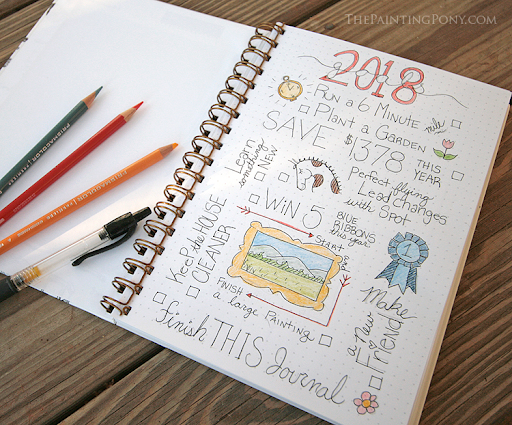 ThePaintingPony.com
2018
goals
Run a 6 Minute
mile
Plant a Garden
SAVE $1,378 THIS
YEAR
Learn
something
NEW
Perfect flying
Lead Changes
with Spot
WIN 5 BLUE
RIBBONS
this year
Keep the HOUSE
CLEANER
START
&
FINISH
a large Painting
Make
a New
Friend
Finish THIS Journal
PRISMACOLOR
PRISMACOLOR
PRISMACOLOR